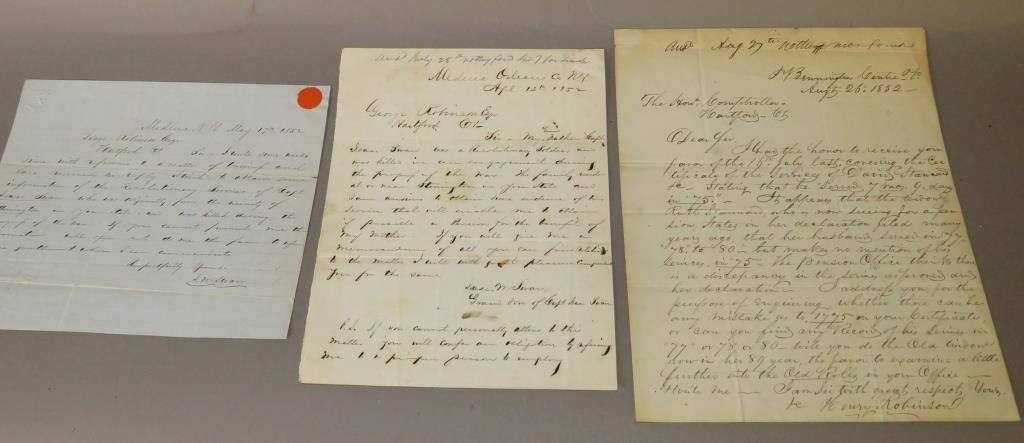 Medina N.Y. May 17th 1852
George Robinson Esqr
Hartford Ct Sir I wrote some weeks
since with reference to a matter of
received no reply I wish to obtain some
information of the Revolutionary Services of Capt
Isaac Swan who was originally from the vicinity of
in your state and was killed during the
of the War If you cannot furnish me the
will you not do me the favor to
Respectfully Yours
I. W. Swan
Ansd July 28th
Medina Orleans Co NY
Apl 12th 1852
George Robinson Esqr
Hartford Ct
Sir - My Father Capt
Isaac Swan was a Revolutionary Soldier and
was killed in an engagement during
the progress of the War. The family resided
at or near Stonington in your State and
I am anxious to obtain some evidence of his
service that will enable me to obtain
if possible a Pension for the benefit of
My Mother If you will give me a
Memorandum of all you can find relating
to the matter I will with great pleasure compensate
you for the same
Isaac W. Swan
Grand Son of Capt Isaac Swan
P.S. If you cannot personally attend to this
matter you will confer an obligation by
me to a proper person to employ
Ansd Aug 27th nothing more found
Bennington Centre
Augt 26. 1852 -
The Honl. Comptroller -
Hartford - Ct.
Dear Sir
I had the honor to receive your
favor of the 19th July last, covering the Cer-
tificate of the Services of David Stannard
&c Stating that he Served 7 mos. 9 days
in '75; - It appears that the widow
Ruth Stannard, who is now suing for a pen-
sion, States in her declaration filed many
years ago, that her husband, served in '77-
'78 to '80 - but makes no mention of his
services in '75 - The Pension Office thinks there
is a discrepancy in the service as proved and
her declaration - I address you for the
purpose of enquiring, whether there can be
any mistake as to 1775 on your Certificate,
or can you find any Record of his Services in
'77 or '78 or '80 - Will you do the Old Widow
now in her 89 year, the favor to examine a little
further into the Old Rolls in your Office -
& write me - I am Sir with great respect, Yours
&c Henry Robinson